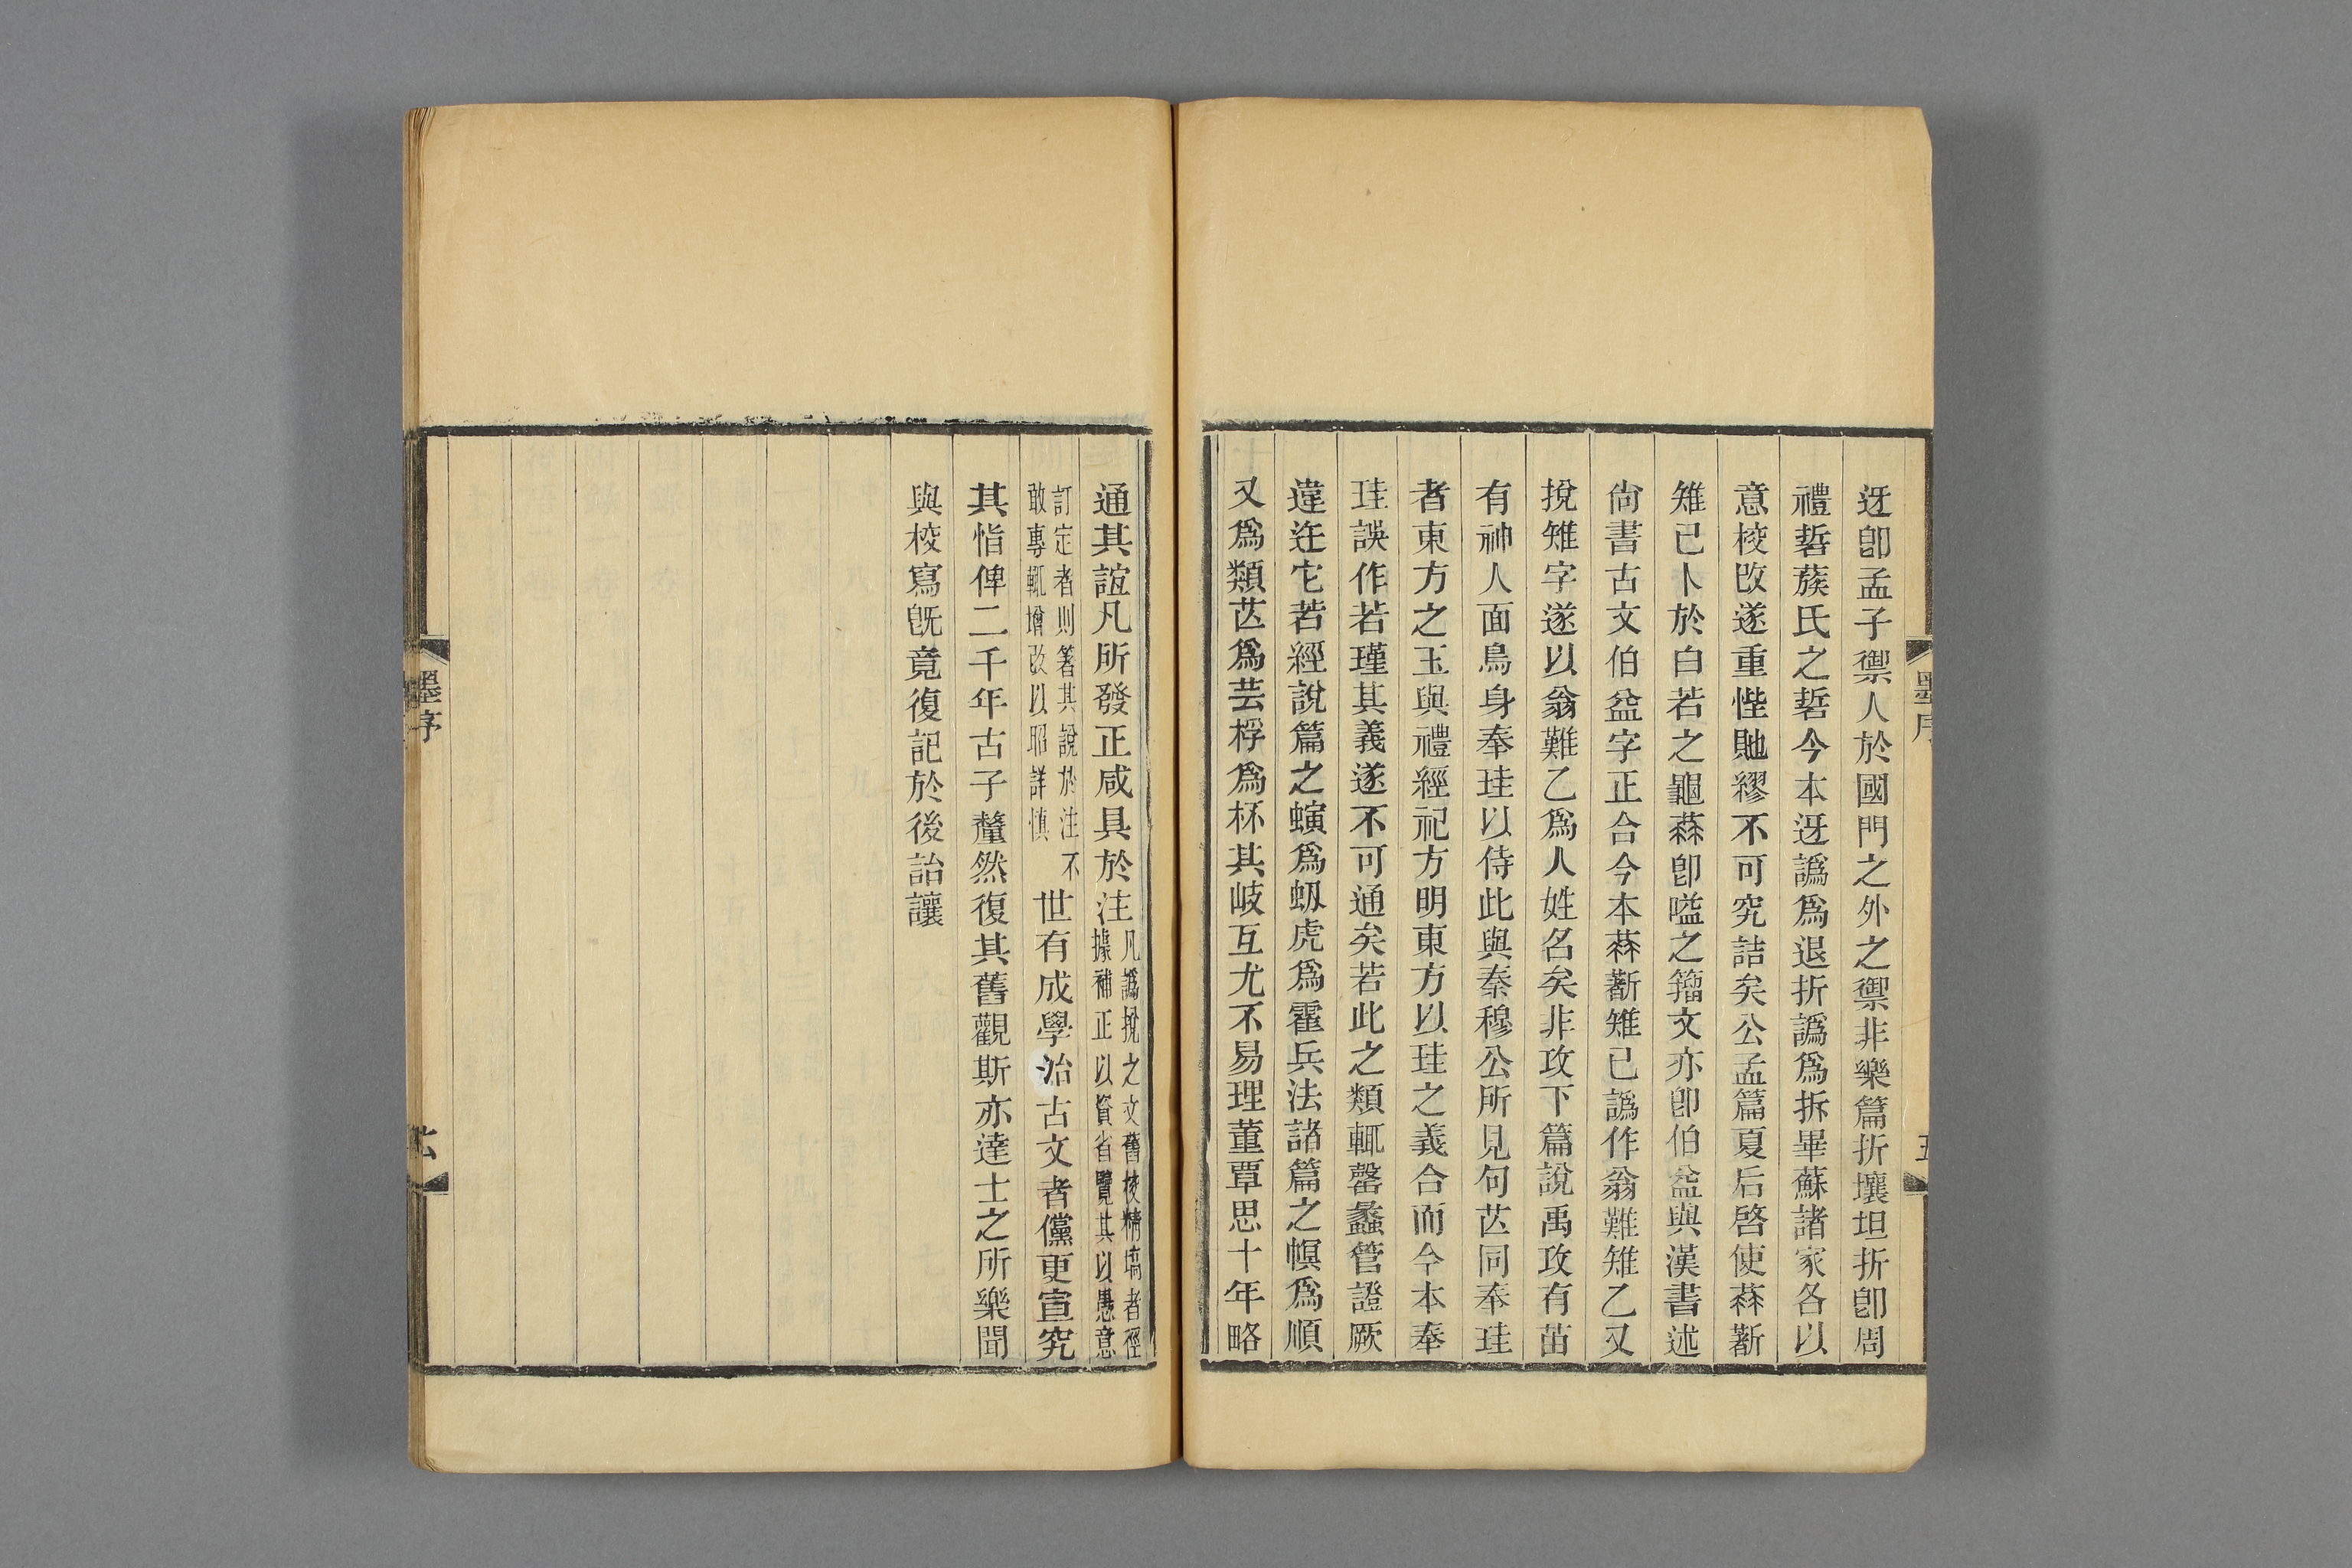 迓卽孟子禦人於國門之外之禦非樂篇折壤坦折卽周
禮硩蔟氏之硩今本迓譌爲退折譌爲拆畢蘇諸家各以
意校改遂重悂貤繆不可究詰矣公孟篇夏后啓使蓁新
雉已卜於白若之龜蓁卽嗌之籒文亦卽伯益與漢書述
尙書古文伯益字正合今本蓁斵雉已譌作翁難雉乙又
挩雉字遂以翁難乙爲人姓名矣非攻下篇說禹攻有苗
有神人面鳥身奉珪以侍此與秦穆公所見句芒同奉珪
者東方之玉與禮經祀方明東方以珪之義合而今本奉
珪誤作若瑾其義遂不可通矣若此之類輒罄蠡管證厥
違迕它若經說篇之螾爲蚓虎爲霍兵法諸篇之幎爲順
又爲類芒爲芸桴爲杯其岐互尤不易理董覃思十年略
墨序
五
通其誼凡所發正咸具於注
凡譌挩之文舊校精塙者徑
據補正以資省覽其以愚意
訂定者則箸其說於注不
敢專輒增改以昭詳慎
世有成學治古文者儻更宣究
其恉俾二千年古子釐然復其舊觀斯亦達士之所樂聞
與校寫旣竟復記於後詒讓
墨序